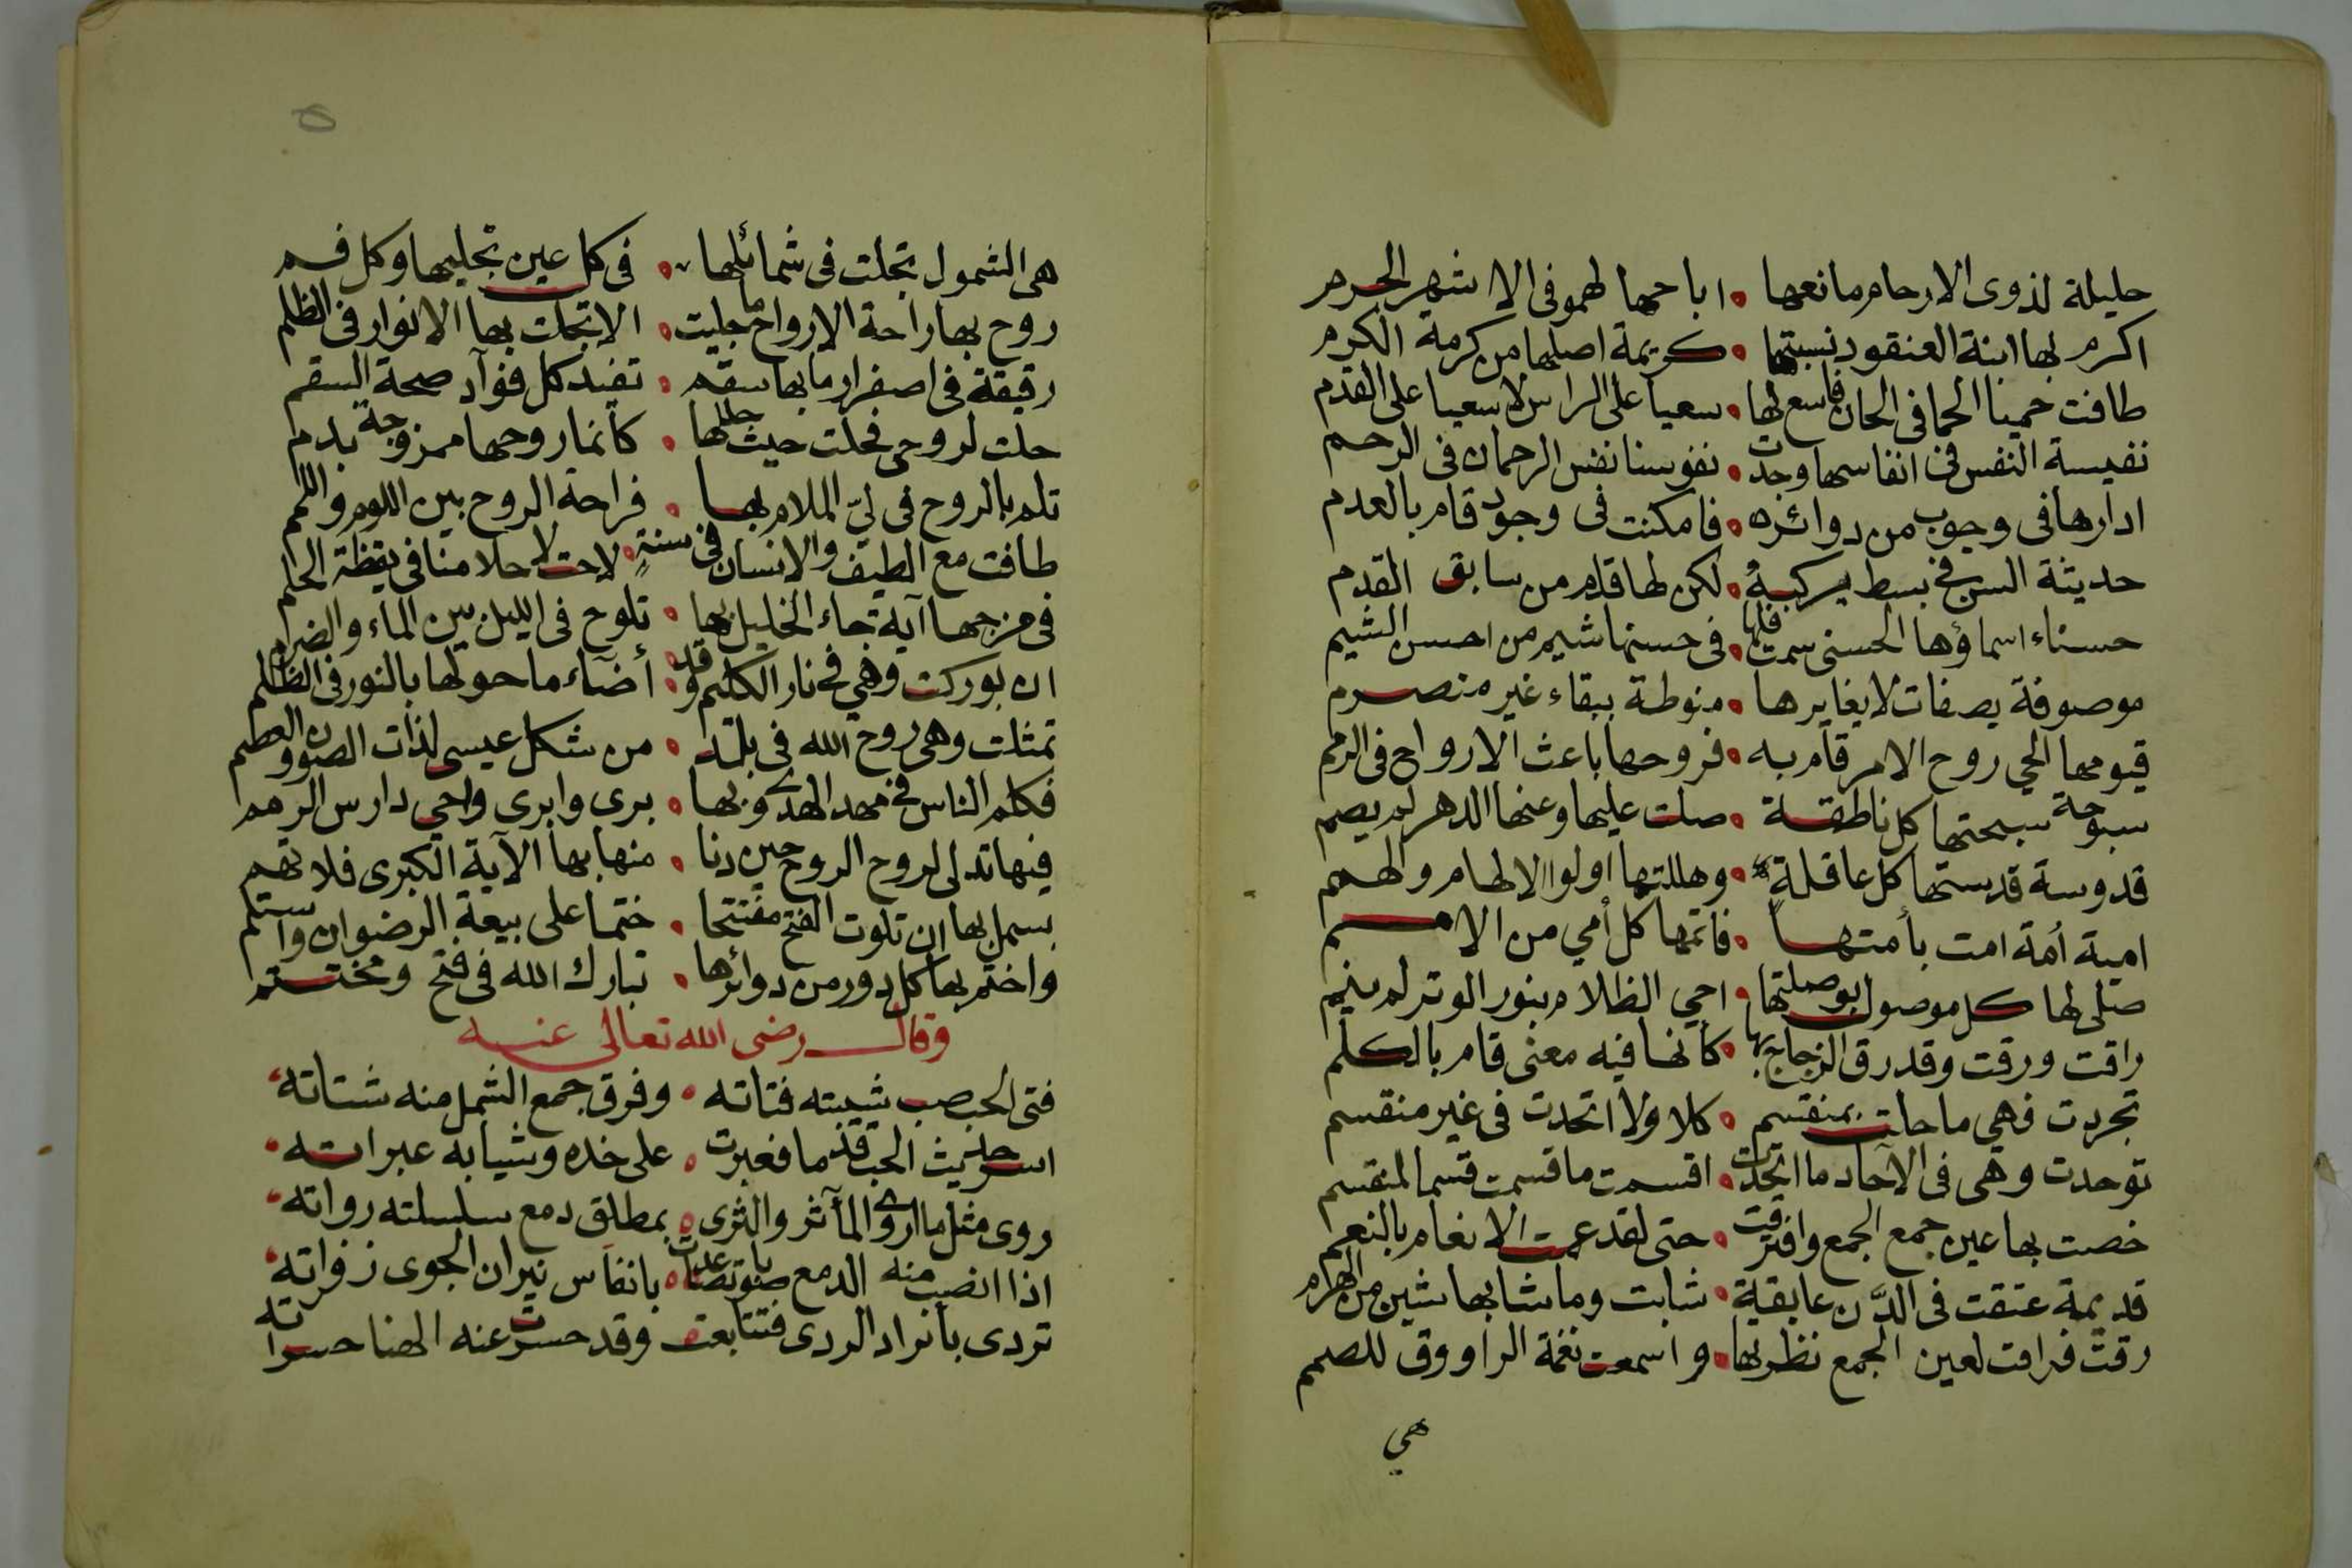 حليلة لذوى الارحام مانعها • اباحها لهمو فى الاشهر الحرم
اكرم بها ابنة العنقود نسبتها • كريمة اصلها من كرمة الكرم
طافت حميا الحما فى الحان فاسع لها • سعيا على الراس لا سعيا على القدم
نفيسة النفس فى انفاسها وجدت • نفوسنا نفس الرحمان فى الرحم
ادارها فى وجوب من دوائره • فامكنت فى وجود قام بالعدم
حديثة السن فى بسط يركبه • لكن لها قدم من سابق القدم
حسناء اسماؤها الحسنى سمت فلها • فى حسنها شيم من احسن الشيم
موصوفة بصفات لا يغايرها • منوطة ببقاء غير منصرم
قيومها الحي روح الامر قام به • فروحها باعث الارواح فى الرمم
سبوحة سبحتها كل ناطقة • صلت عليها وعنها الدهر لم يصم
قدوسة قدستها كل عاقلةٍ • وهللتها اولوا الالهام والهمم
امية أمة امت بأمتها • فأتمها كل أمي من الامم
صلى لها كل موصول بوصلتها • احي الظلام بنور الوتر لم ينم
راقت ورقت وقد رق الزجاج بها • كأنها فيه معنى قام بالكلم
تجردت فهي ما حلت بمنقسم • كلا ولا اتحدت فى غير منقسم
توحدت وهى فى الآحاد ما اتحدت • اقسمت ما قسمت قسما لمنقسم
خصت بها عين جمع الجمع وافترقت • حتى لقد عمت الانعام بالنعم
قديمة عتقت فى الدَّن عابقية • شابت وما شابها شين من الهرم
رقتّ فراقت لعين الجمع نظربها • واسمعت نغمة الراووق للصمم
هي
هى الشمول تجلت فى شمائلها • فى كل عين تجليها وكل فم
روح بها راحة الارواح ما جليت • الا تجلت بها الانوار فى الظلم
رقيقة فى اصفرار ما بها سقم • تفيد كل فؤآد صحة السقم
حلت لروحى فحلت حيث حللها • كأنما روحها ممزوجة بدم
تلم بالروح فى ليّ الملام بها • فراحة الروح بين اللوم واللمم
طافت مع الطيف والانسان فى سنةٍ • لاحت لاحلامنا فى يقظة الحلم
فى مزجها آية جاء الخليل بها • تلوح فى الليل بين الماء والضرم
ان بوركت وهي فى نار الكليم وقد • أضآء ما حولها بالنور فى الظلم
تمثلت وهى روح الله فى بلد • من شكل عيسى لذات الصون والعطم
فكلم الناس فى مهد الهدى وبها • برى وابرى واحي دارس الرمم
فيها تدلى لروح الروح حين دنا • منها بها الآية الكبرى فلا تهم
بسمل بها ان تلوت الفتح مفتتحا • ختما على بيعة الرضوان واستلم
واختم بها كل دور من دوائرها • تبارك الله فى فتح ومختتم
وقال رضى الله تعالى عنه
فتى الحب صب شيبته فتاته • وفرق جمع الشمل منه شتاته
اسر حديث الحب قدما فعبرت • على خده وشيابه عبراته
روى مثل ما اروى المآثر والثرى • بمطلق دمع سلسلته رواته
اذا انصب منه الدمع صوبا تصاعدت • بانفاس نيران الجوى زفراته
تردى بأبراد الردى فتتابعت وقد حسرت عنه الهنا حسراته